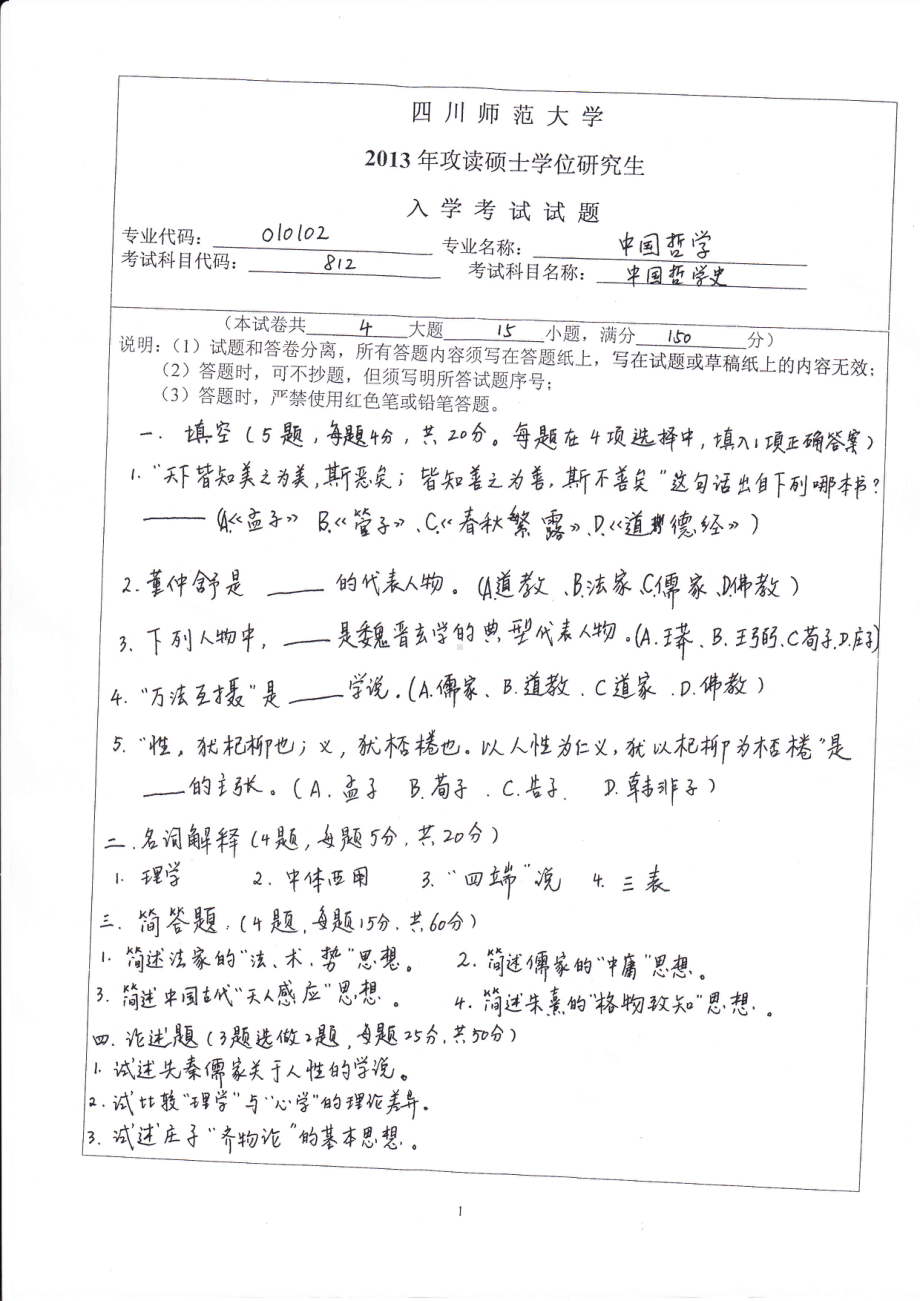 四川师范大学
2013年攻读硕士学位研究生
入学考试试题
专业代码： 010102 专业名称： 中国哲学
考试科目代码： 812 考试科目名称： 中国哲学史
（本试卷共 4 大题 15 小题，满分 150 分）
说明：（1）试题和答卷分离，所有答题内容须写在答题纸上，写在试题或草稿纸上的内容无效；
（2）答题时，可不抄题，但须写明所答试题序号；
（3）答题时，严禁使用红色笔或铅笔答题。
一、填空（5题，每题4分，共20分。每题在4项选择中，填入1项正确答案）
1."天下皆知美之为美，斯恶矣；皆知善之为善，斯不善矣"这句话出自下列哪本书？
____（A.《孟子》 B.《管子》、C.《春秋繁露》、D.《道德经》）
2.董仲舒是 ____ 的代表人物。（A.道教、B.法家、C.儒家、D.佛教）
3.下列人物中，____是魏晋玄学的典型代表人物。（A.王莽、B.王弼、C荀子、D.庄子）
4."万法互摄"是____学说。（A.儒家、B.道教、C道家、D.佛教）
5."性，犹杞柳也；义，犹桮棬也。以人性为仁义，犹以杞柳为桮棬"是
____的主张。（A.孟子 B.荀子 .C.告子. D.韩非子）
二.名词解释（4题，每题5分，共20分）
1.理学 2.中体西用 3."四端"说 4.三表
三.简答题：（4题，每题15分，共60分）
1.简述法家的"法、术、势"思想。 2.简述儒家的"中庸"思想。
3.简述中国古代"天人感应"思想。 4.简述朱熹的"格物致知"思想。
四.论述题（3题选做2题，每题25分，共50分）
1.试述先秦儒家关于人性的学说。
2.试比较"理学"与"心学"的理论差异。
3.试述庄子"齐物论"的基本思想。
1